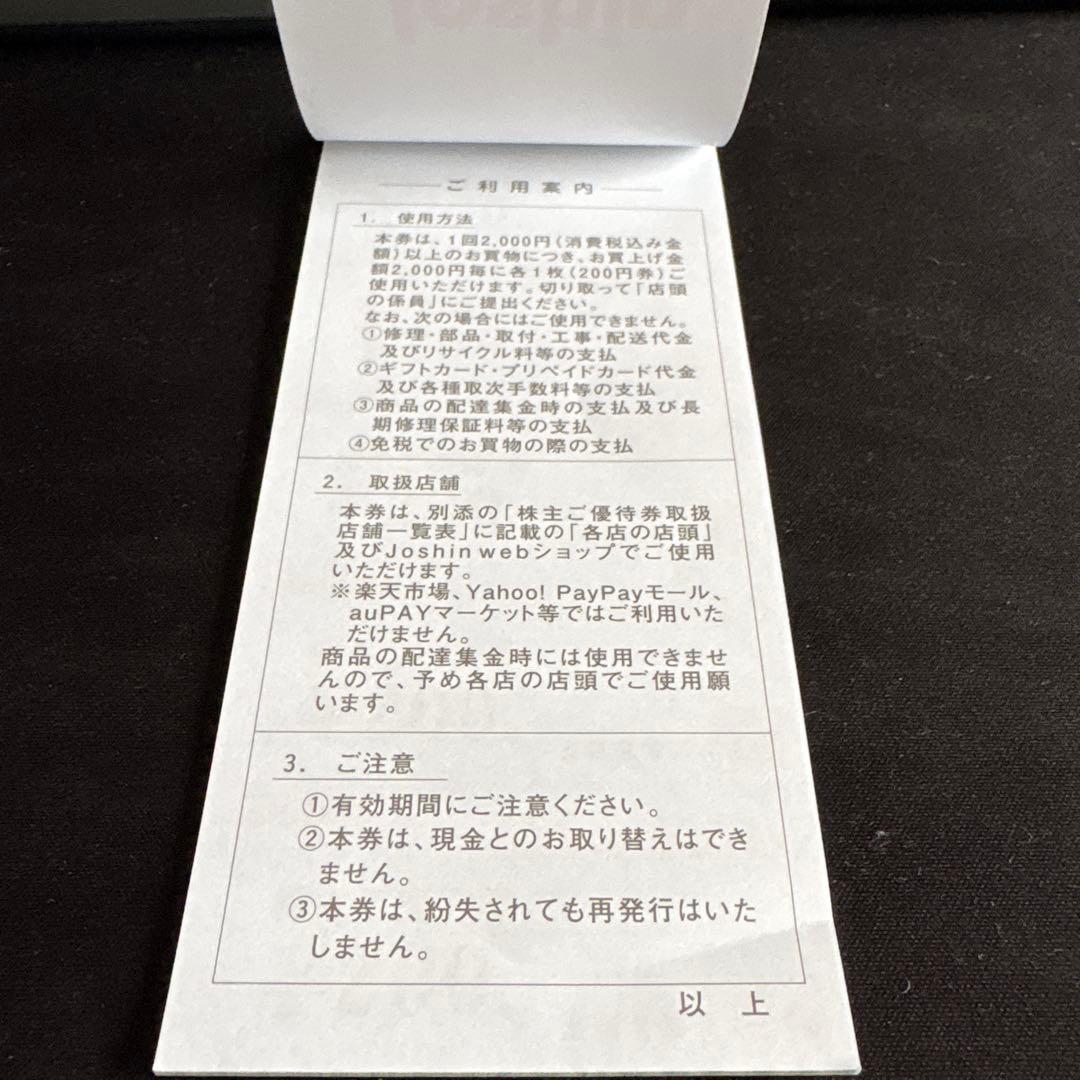 ご利用案内
1. 使用方法
本券は、1回2,000円(消費税込み金
額)以上のお買物につき、お買上げ金
額2,000円毎に各1枚(200円券)ご
使用いただけます。切り取って「店頭
の係員」にご提出ください。
なお、次の場合にはご使用できません。
①修理・部品・取付・工事・配送代金
及びリサイクル料等の支払
②ギフトカード・プリペイドカード代金
及び各種取次手数料等の支払
③商品の配達集金時の支払及び長
期修理保証料等の支払
④免税でのお買物の際の支払
2. 取扱店舗
本券は、別添の「株主ご優待券取扱
店舗一覧表」に記載の「各店の店頭」
及びJoshin webショップでご使用
いただけます。
※楽天市場、Yahoo! PayPayモール、
auPAYマーケット等ではご利用いた
だけません。
商品の配達集金時には使用できませ
んので、予め各店の店頭でご使用願
います。
3. ご注意
①有効期間にご注意ください。
②本券は、現金とのお取り替えはでき
ません。
③本券は、紛失されても再発行はいた
しません。
以上